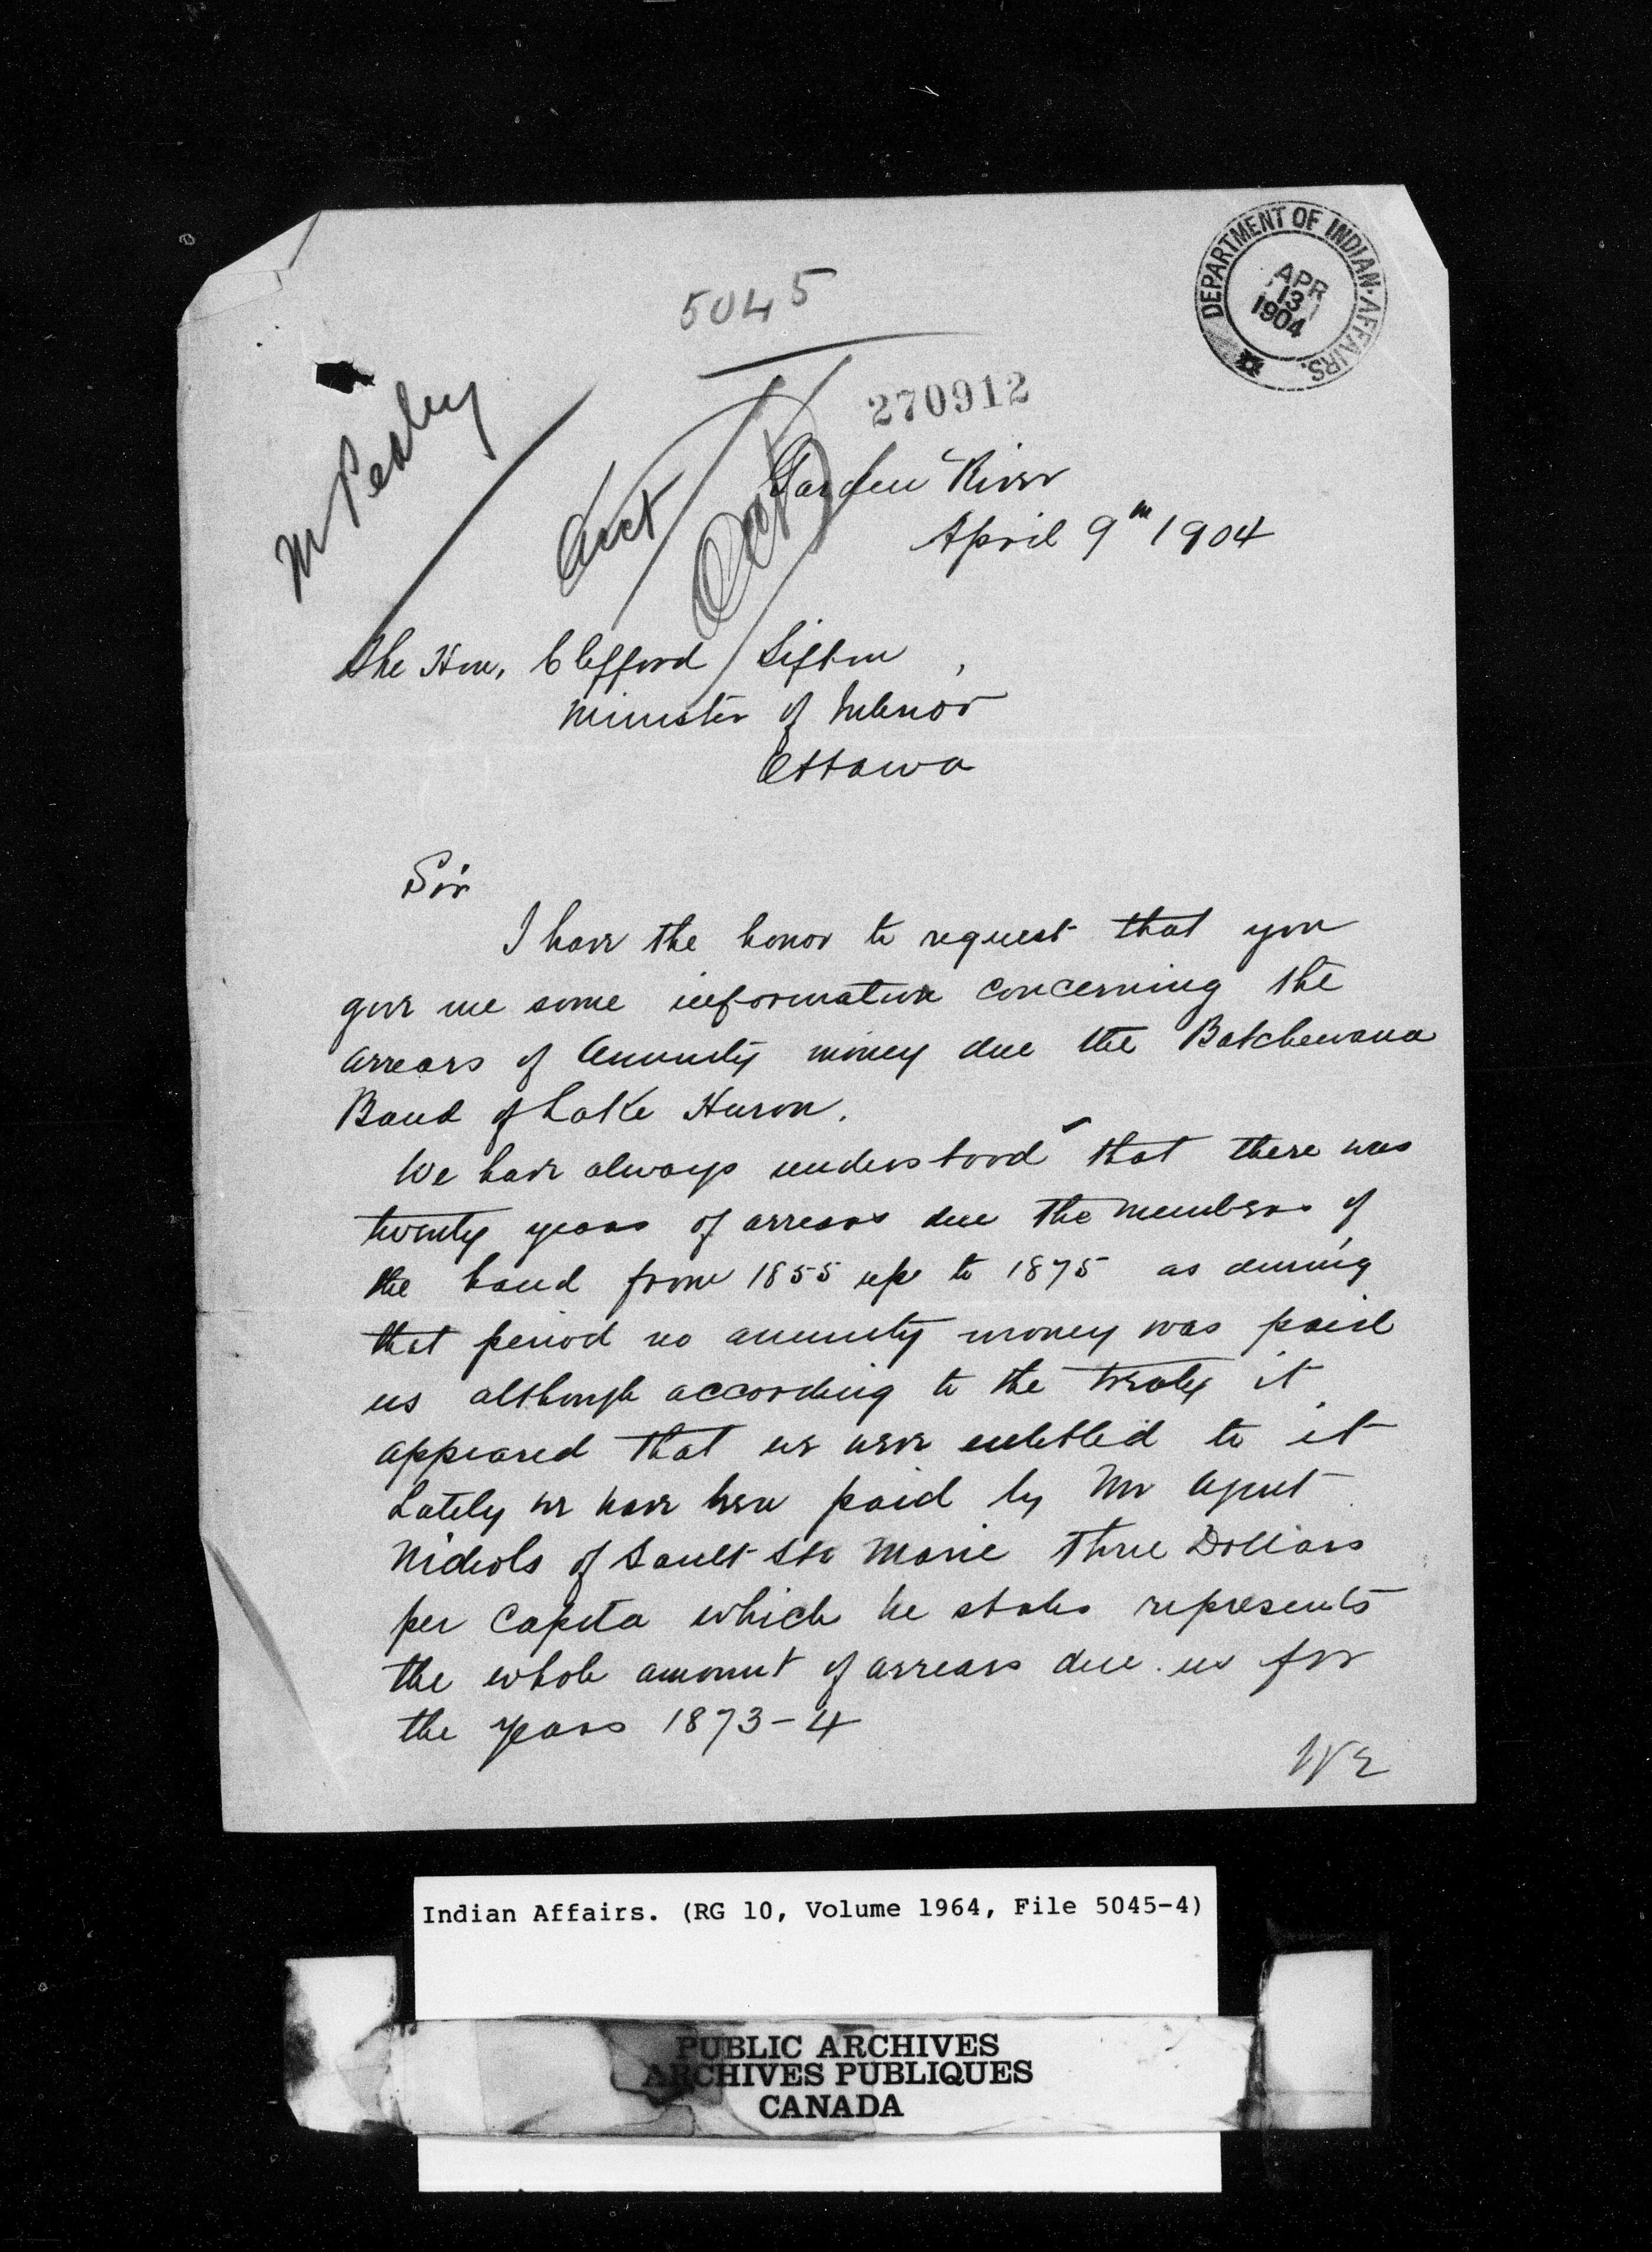 5045
DEPARTMENT OF INDIAN AFFAIRS.
APR
13
1904
270912
Mr Pedley
Acct
Garden River
April 9th 1904
The Hon. Clifford Sifton,
Minister of Interior
Ottawa
Sir
I have the honor to request that you
give me some information concerning the
arrears of Annuity money due the Batchewana
Band of Lake Huron.
We have always understood that there was
twenty years of arrears due the members of
the band from 1855 up to 1875 as during
that period no annuity money was paid
us although according to the treaty it
appeared that we were entitled to it
Lately we have been paid by Mr Agent
Nichols of Sault Ste Marie Three Dollars
per Capita which he states represents
the whole amount of arrears due us for
the years 1873-4
We
Indian Affairs. (RG 10, Volume 1964, File 5045-4)
PUBLIC ARCHIVES
ARCHIVES PUBLIQUES
CANADA